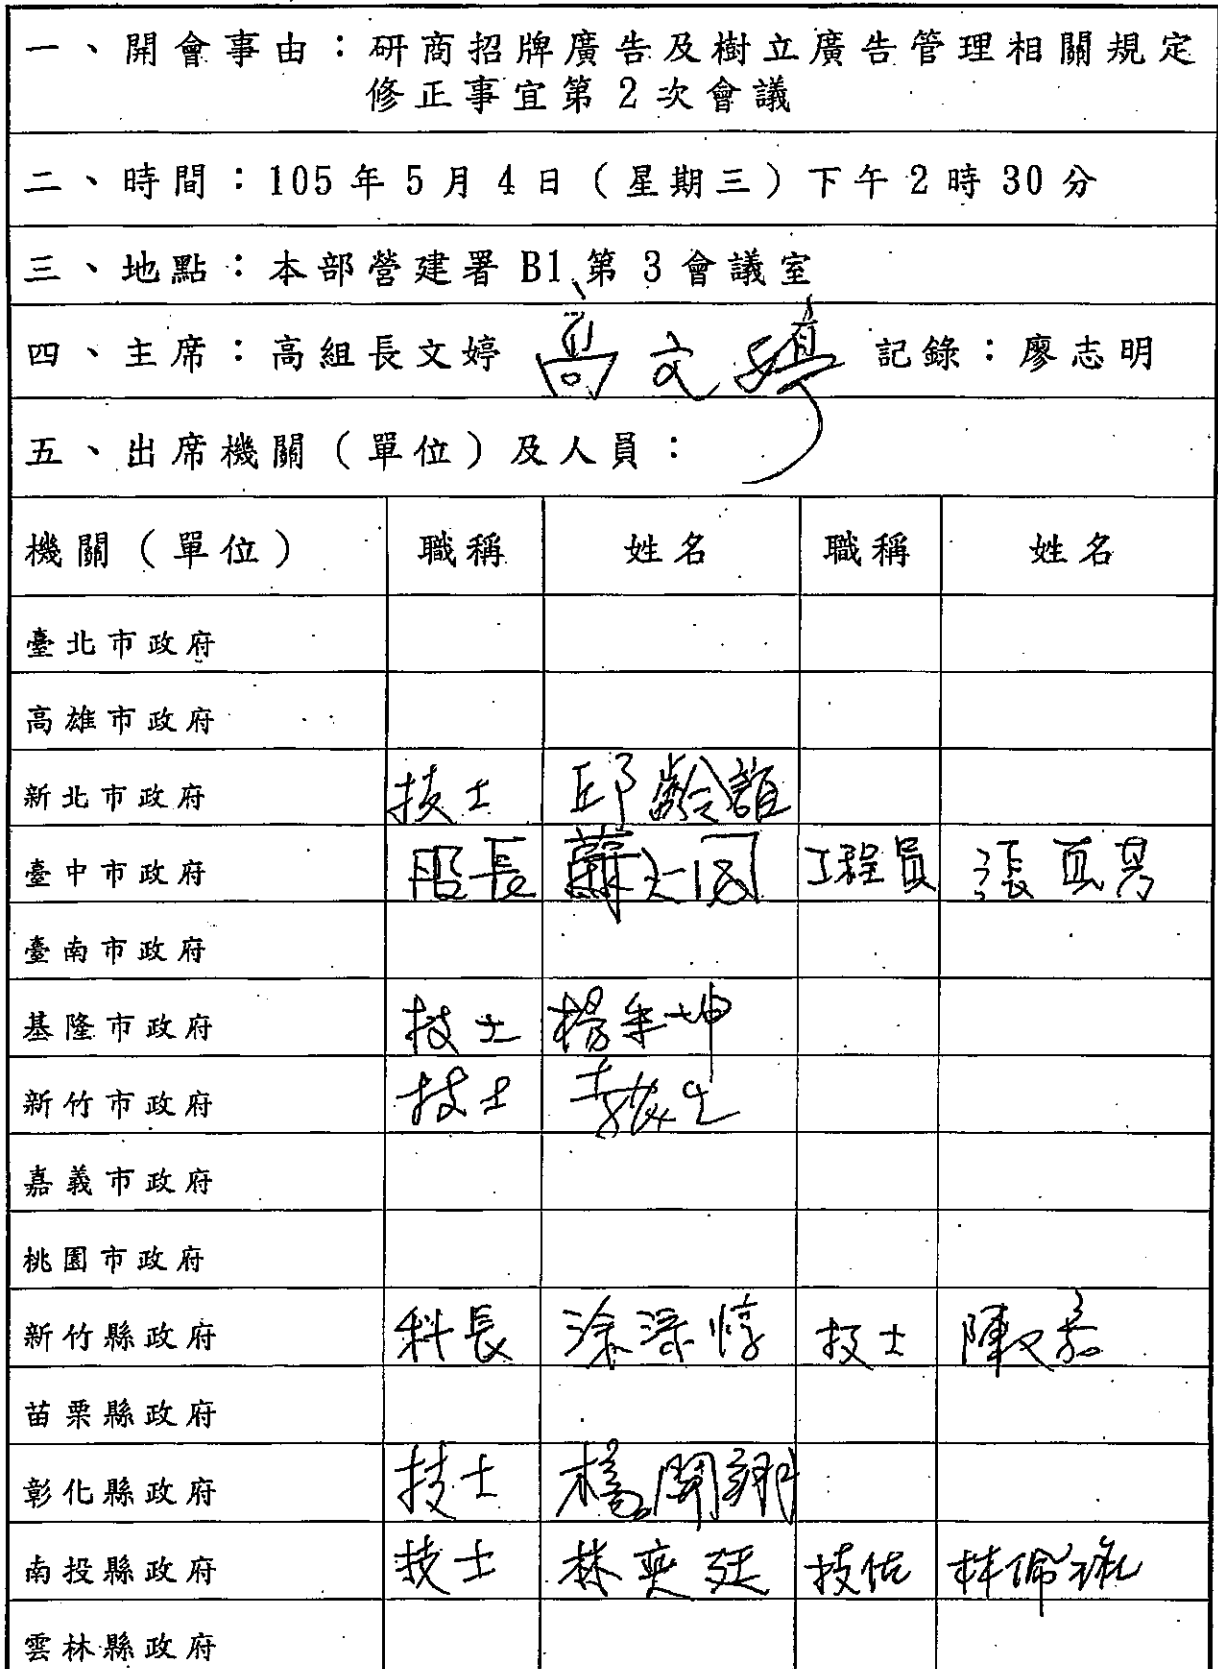 一、開會事由：研商招牌廣告及樹立廣告管理相關規定
修正事宜第2次會議
二、時間：105年5月4日（星期三）下午2時30分
三、地點：本部營建署B1第3會議室
四、主席：高組長文婷 高文婷 記錄：廖志明
五、出席機關（單位）及人員：
機關（單位） 職稱 姓名 職稱 姓名
臺北市政府
高雄市政府
新北市政府 技士 邱齡誼
臺中市政府 股長 工程員
臺南市政府
基隆市政府 技士
新竹市政府 技士
嘉義市政府
桃園市政府
新竹縣政府 科長 技士
苗栗縣政府
彰化縣政府 技士 楊開翔
南投縣政府 技士 林奕廷 技佐
雲林縣政府